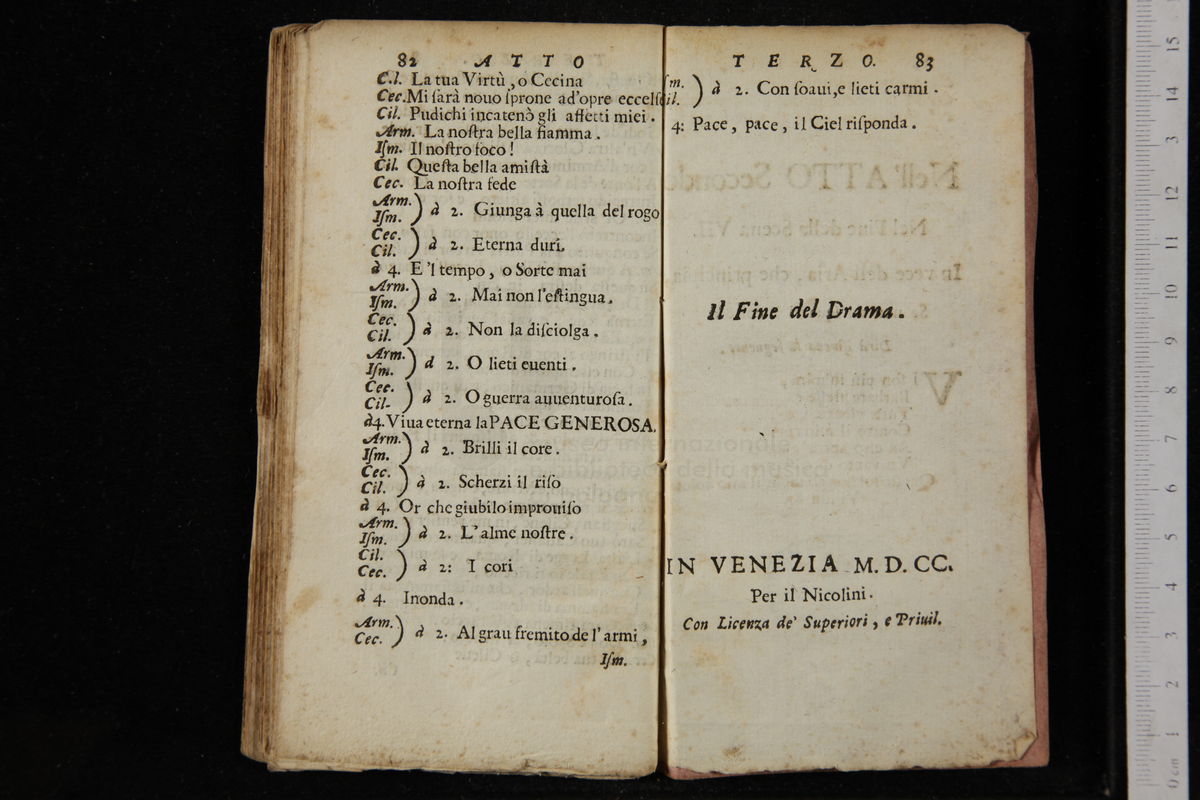 82 ATTO
C.l. La tua Virtù, o Cecina
Cec. Mi ſarà nouo ſprone ad'opre eccelſe
Cil. Pudichi incatenò gli affetti miei.
Arm. La noſtra bella fiamma.
Iſm. Il noſtro foco!
Cil. Queſta bella amiſtà
Cec. La noſtra fede
Arm.
Iſm. ) à 2. Giunga à quella del rogo
Cec.
Cil. ) à 2. Eterna duri.
à 4. E 'l tempo, o Sorte mai
Arm.
Iſm. ) à 2. Mai non l'eſtingua.
Cec.
Cil. ) à 2. Non la diſciolga.
Arm.
Iſm. ) à 2. O lieti euenti.
Cec.
Cil. ) à 2. O guerra auuenturoſa.
à 4. Viua eterna la PACE GENEROSA.
Arm.
Iſm. ) à 2. Brilli il core.
Cec.
Cil. ) à 2. Scherzi il riſo
à 4. Or che giubilo improuiſo
Arm.
Iſm. ) à 2. L'alme noſtre.
Cil.
Cec. ) à 2: I cori
à 4. Inonda.
Arm.
Cec. ) à 2. Al grau fremito de l'armi,
Iſm.
TERZO. 83
ſm.
il. ) à 2. Con ſoaui, e lieti carmi.
4: Pace, pace, il Ciel riſponda.
Il Fine del Drama.
IN VENEZIA M. D. CC.
Per il Nicolini.
Con Licenza de' Superiori, e Priuil.